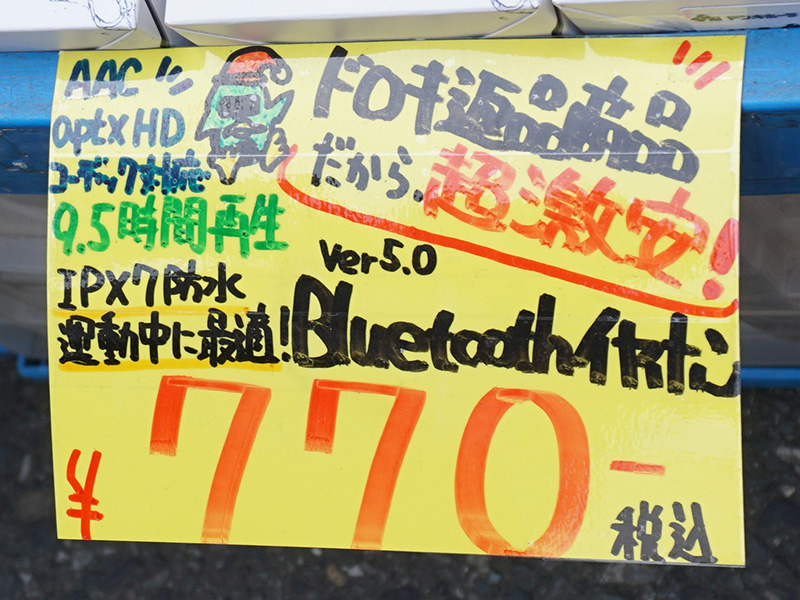 AAC
aptX HD
コーデック対応
9.5時間再生
IPX7防水
運動中に最適!
ドロキ返品商品
だから、超激安!
Ver5.0
Bluetoothイヤホン
¥770-
税込